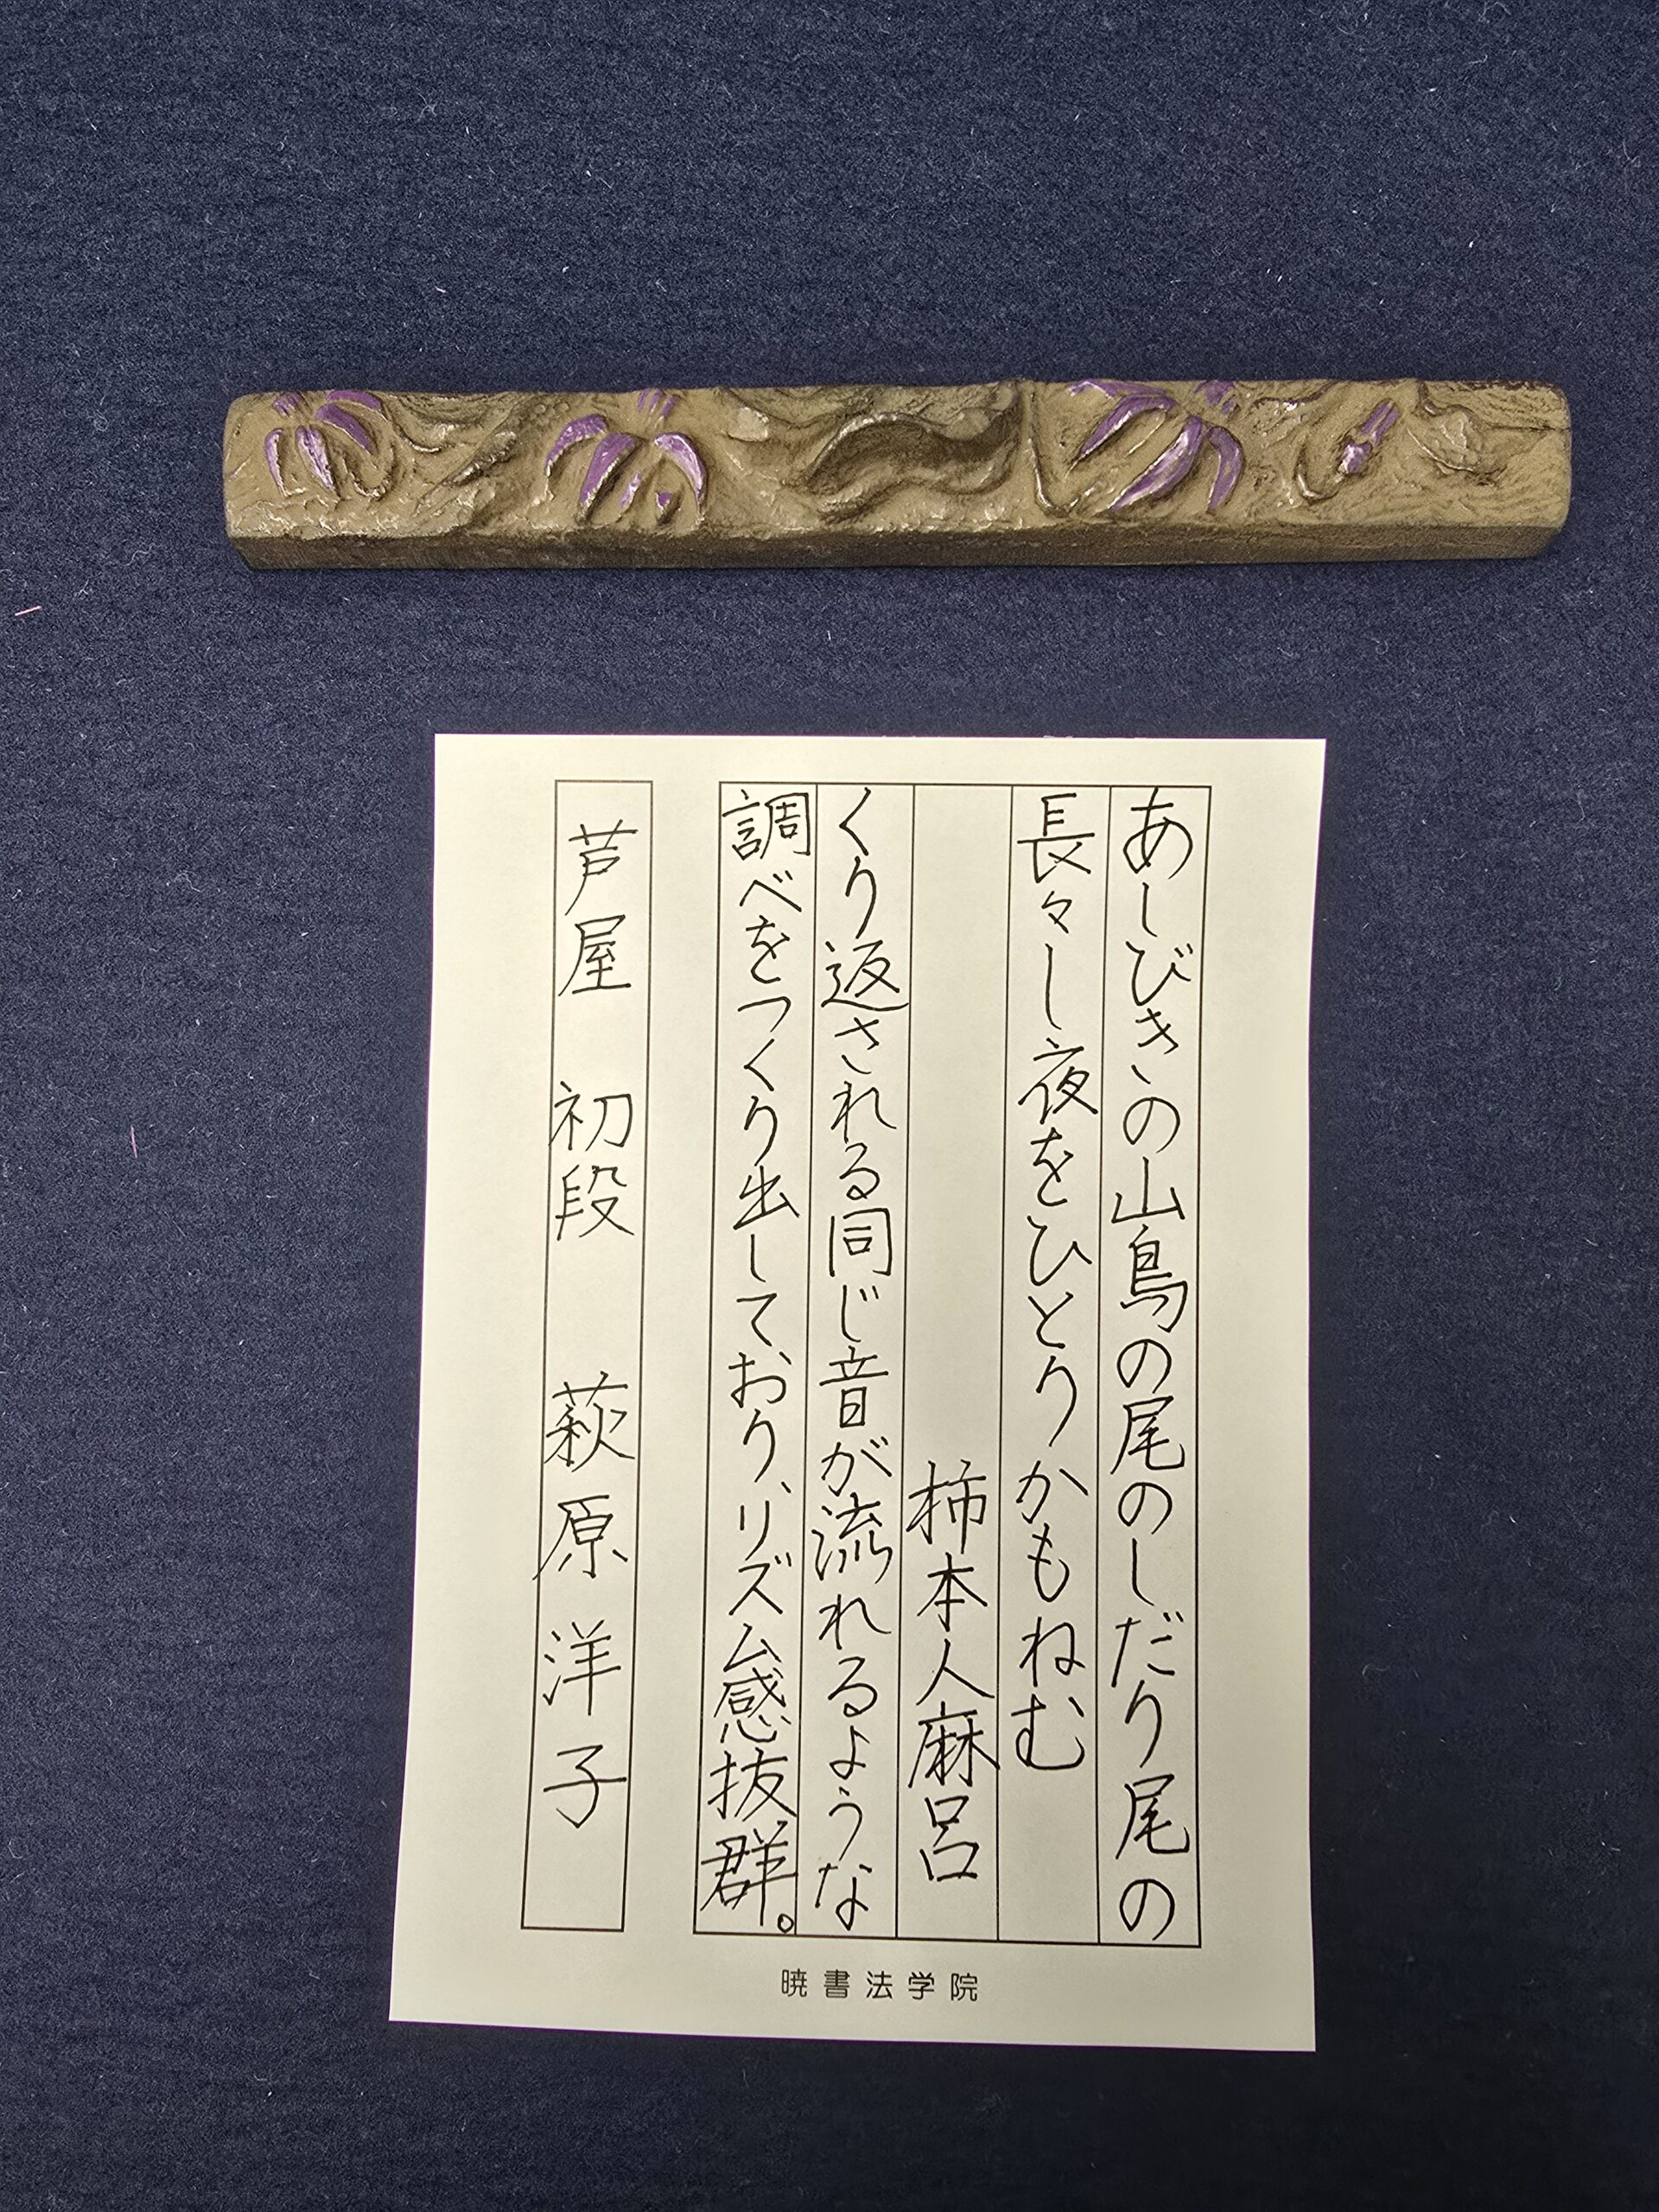 あしびきの山鳥の尾のしだり尾の
長々し夜をひとりかもねむ
柿本人麻呂
くり返される同じ音が流れるような
調べをつくり出しており、リズム感抜群。
芦屋 初段 萩原洋子
暁書法学院